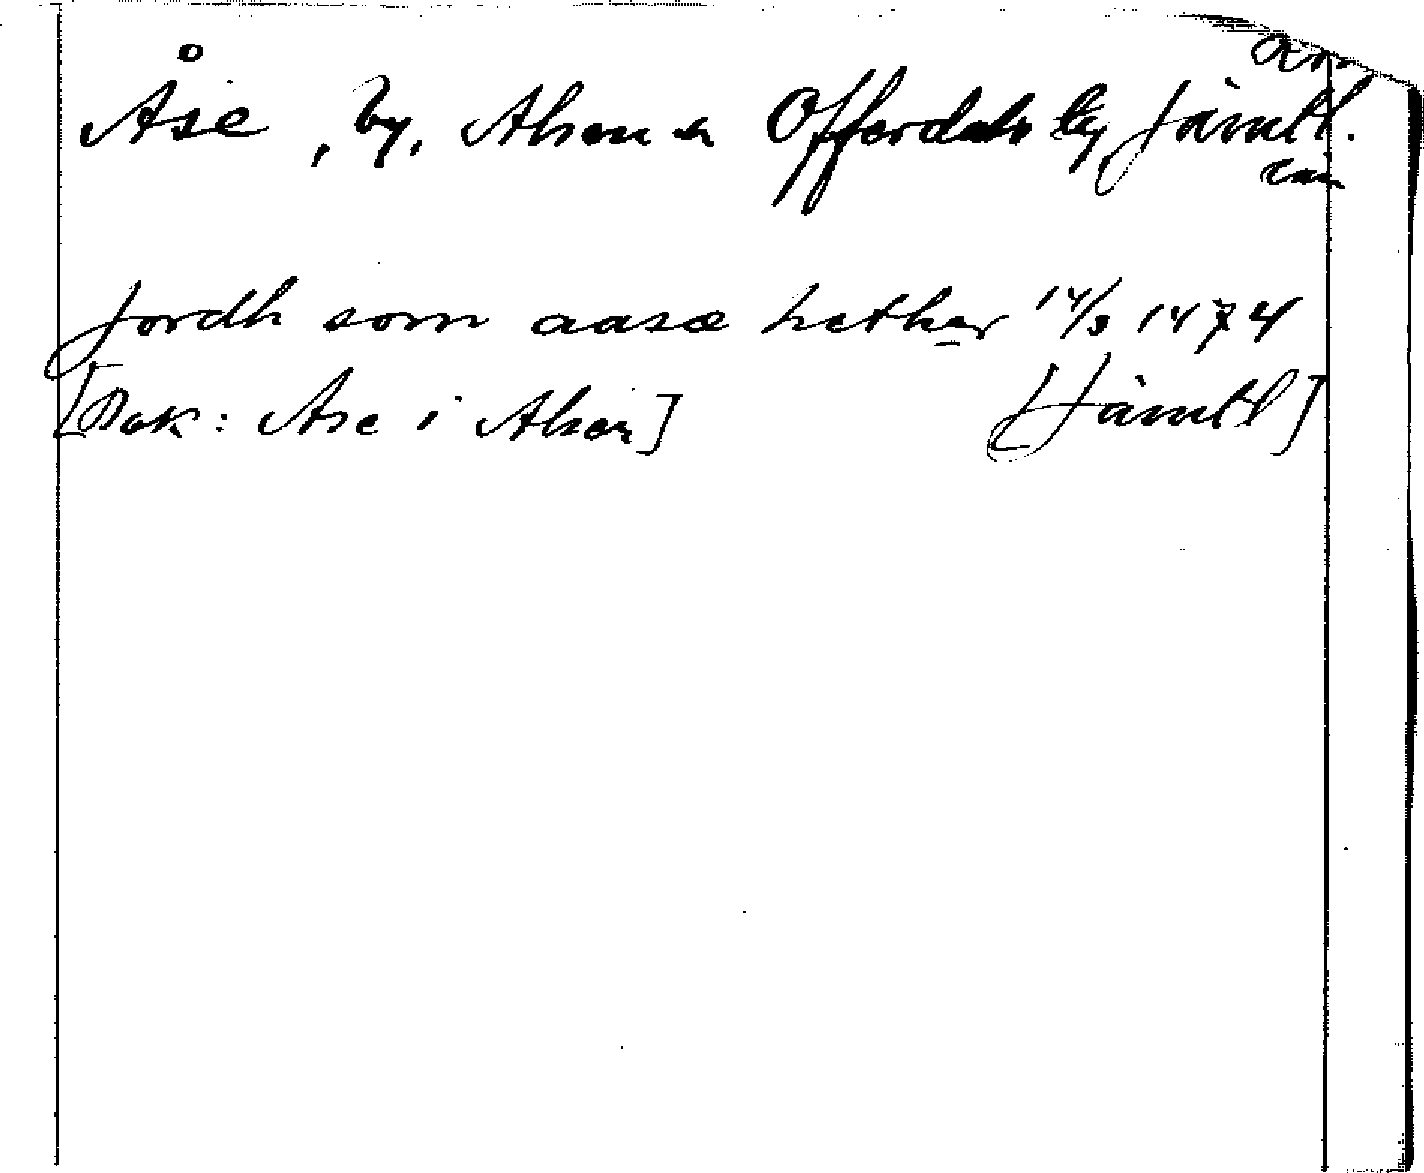 Åse, by, Alsen sn Offerdals tg Jämtl.
län
Jordh som aasæ hether 14/3 1474
[Bak: Åse i Alsen] [Jämtl]